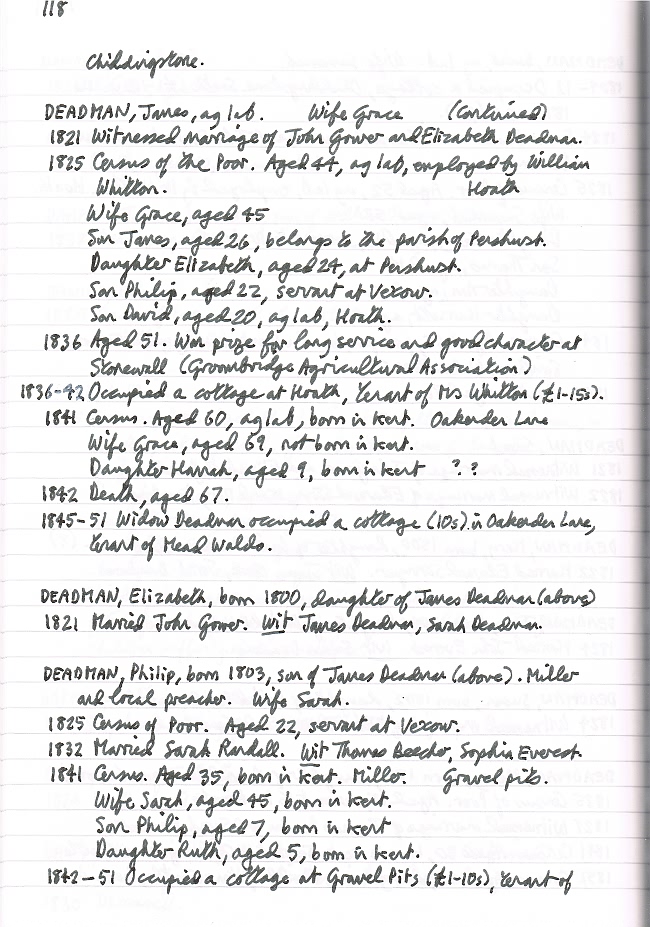 118
Chiddingstone.
DEADMAN, James, ag lab. Wife Grace (Continued)
1821 Witnessed marriage of John Gower and Elizabeth Deadman.
1825 Census of the Poor. Aged 44, ag lab, employed by William
Whitton. Hoath
Wife Grace, aged 45
Son James, aged 26, belongs to the parish of Penshurst.
Daughter Elizabeth, aged 24, at Penshurst.
Son Philip, aged 22, servant at Vexour.
Son David, aged 20, ag lab, Hoath.
1836 Aged 51. Won prize for long service and good character at
Stonewall (Groombridge Agricultural Association)
1836-42 Occupied a cottage at Hoath, tenant of Ms Whitton (£1-15s).
1841 Census. Aged 60, ag lab, born in Kent. Oakenden Lane
Wife Grace, aged 69, not born in Kent.
Daughter Hannah, aged 9, born in Kent ? ?
1842 Death, aged 67.
1845-51 Widow Deadman occupied a cottage (10s) in Oakenden Lane,
tenant of Mead Waldo.
DEADMAN, Elizabeth, born 1800, daughter of James Deadman (above)
1821 Married John Gower. Wit James Deadman, Sarah Deadman.
DEADMAN, Philip, born 1803, son of James Deadman (above). Miller
and local preacher. Wife Sarah.
1825 Census of Poor. Aged 22, servant at Vexour.
1832 Married Sarah Randall. Wit Thomas Beecho, Sophia Everest.
1841 Census. Aged 35, born in Kent. Miller. Gravel pits.
Wife Sarah, aged 45, born in Kent.
Son Philip, aged 7, born in Kent
Daughter Ruth, aged 5, born in Kent.
1842-51 Occupied a cottage at Gravel Pits (£1-10s), tenant of